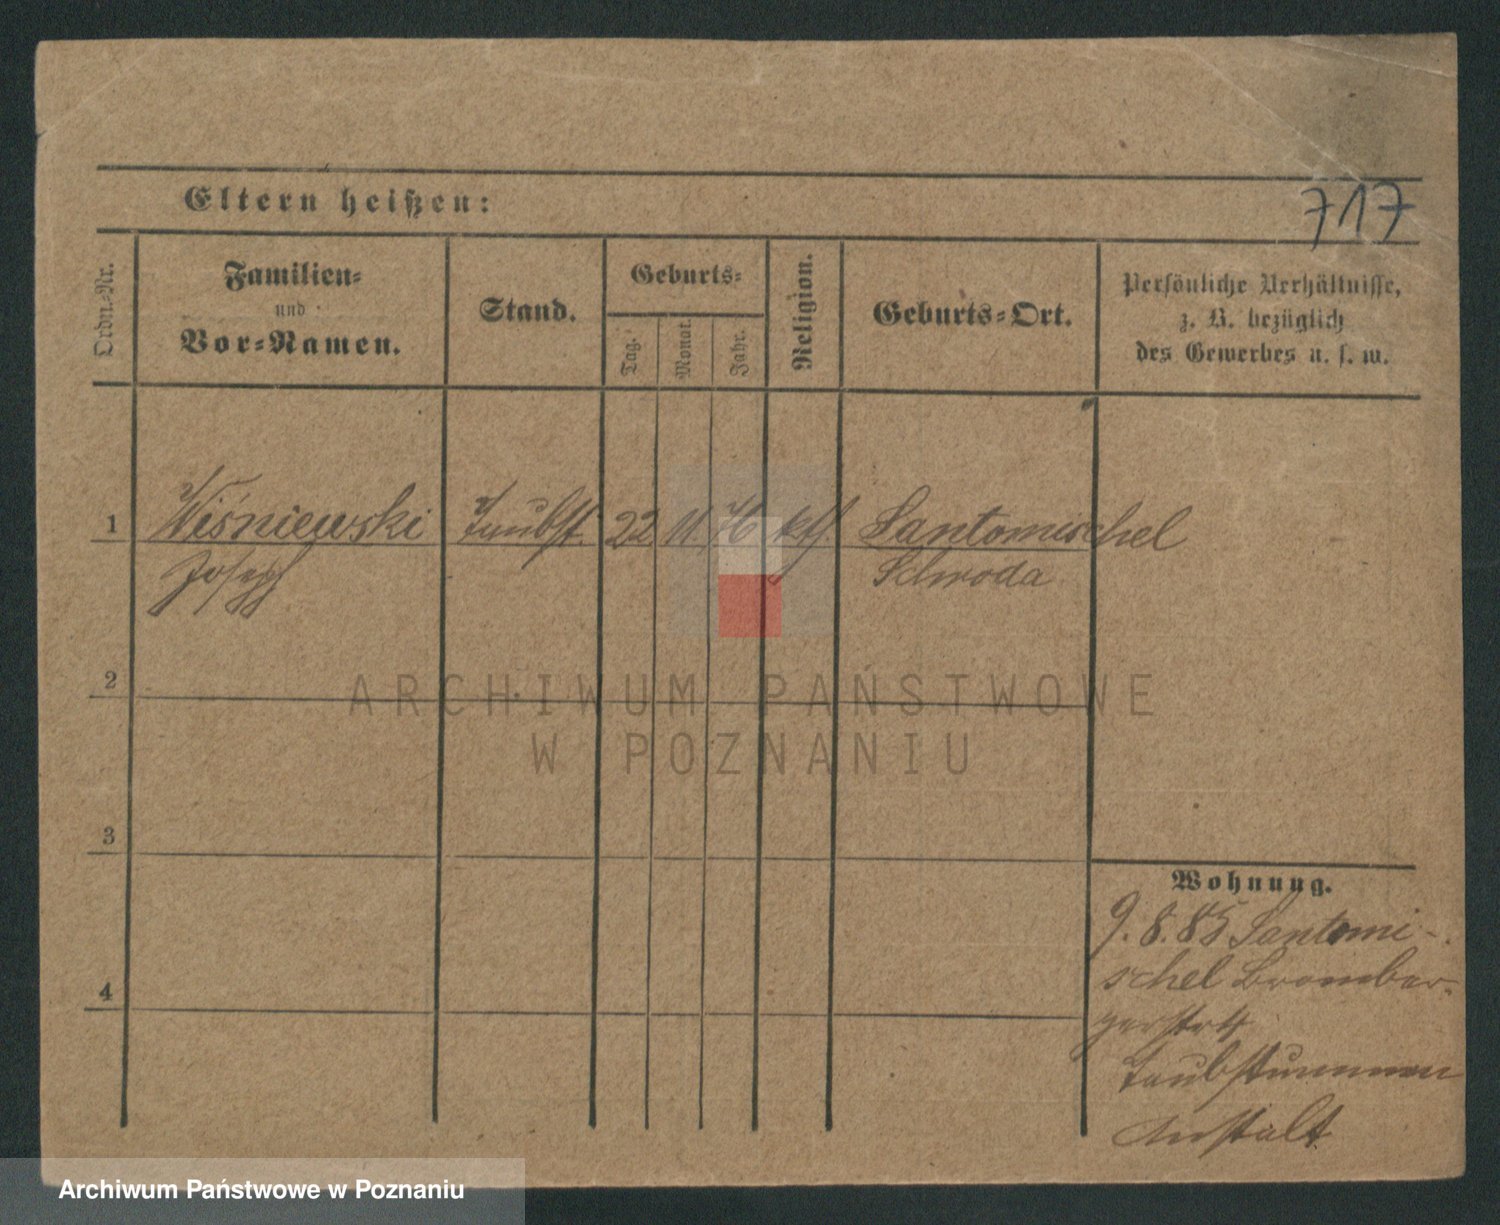 Eltern heißen:
717
Ordn.-Nr.
Familien-
und
Vor-Namen.
Stand.
Geburts-
Tag.
Monat.
Jahr.
Religion.
Geburts-Ort.
Persönliche Verhältnisse,
z. B. bezüglich
des Gewerbes u. s. w.
1 Wiśniewski Taubst. 22 11. 76 kth. Santomischel
Joseph Schroda
2
ARCHIWUM PAŃSTWOWE
W POZNANIU
3
Wohnung.
9. 8. 85 Santomi-
schel Bromber-
gerstr
4
Taubstummen
Anstalt
Archiwum Państwowe w Poznaniu